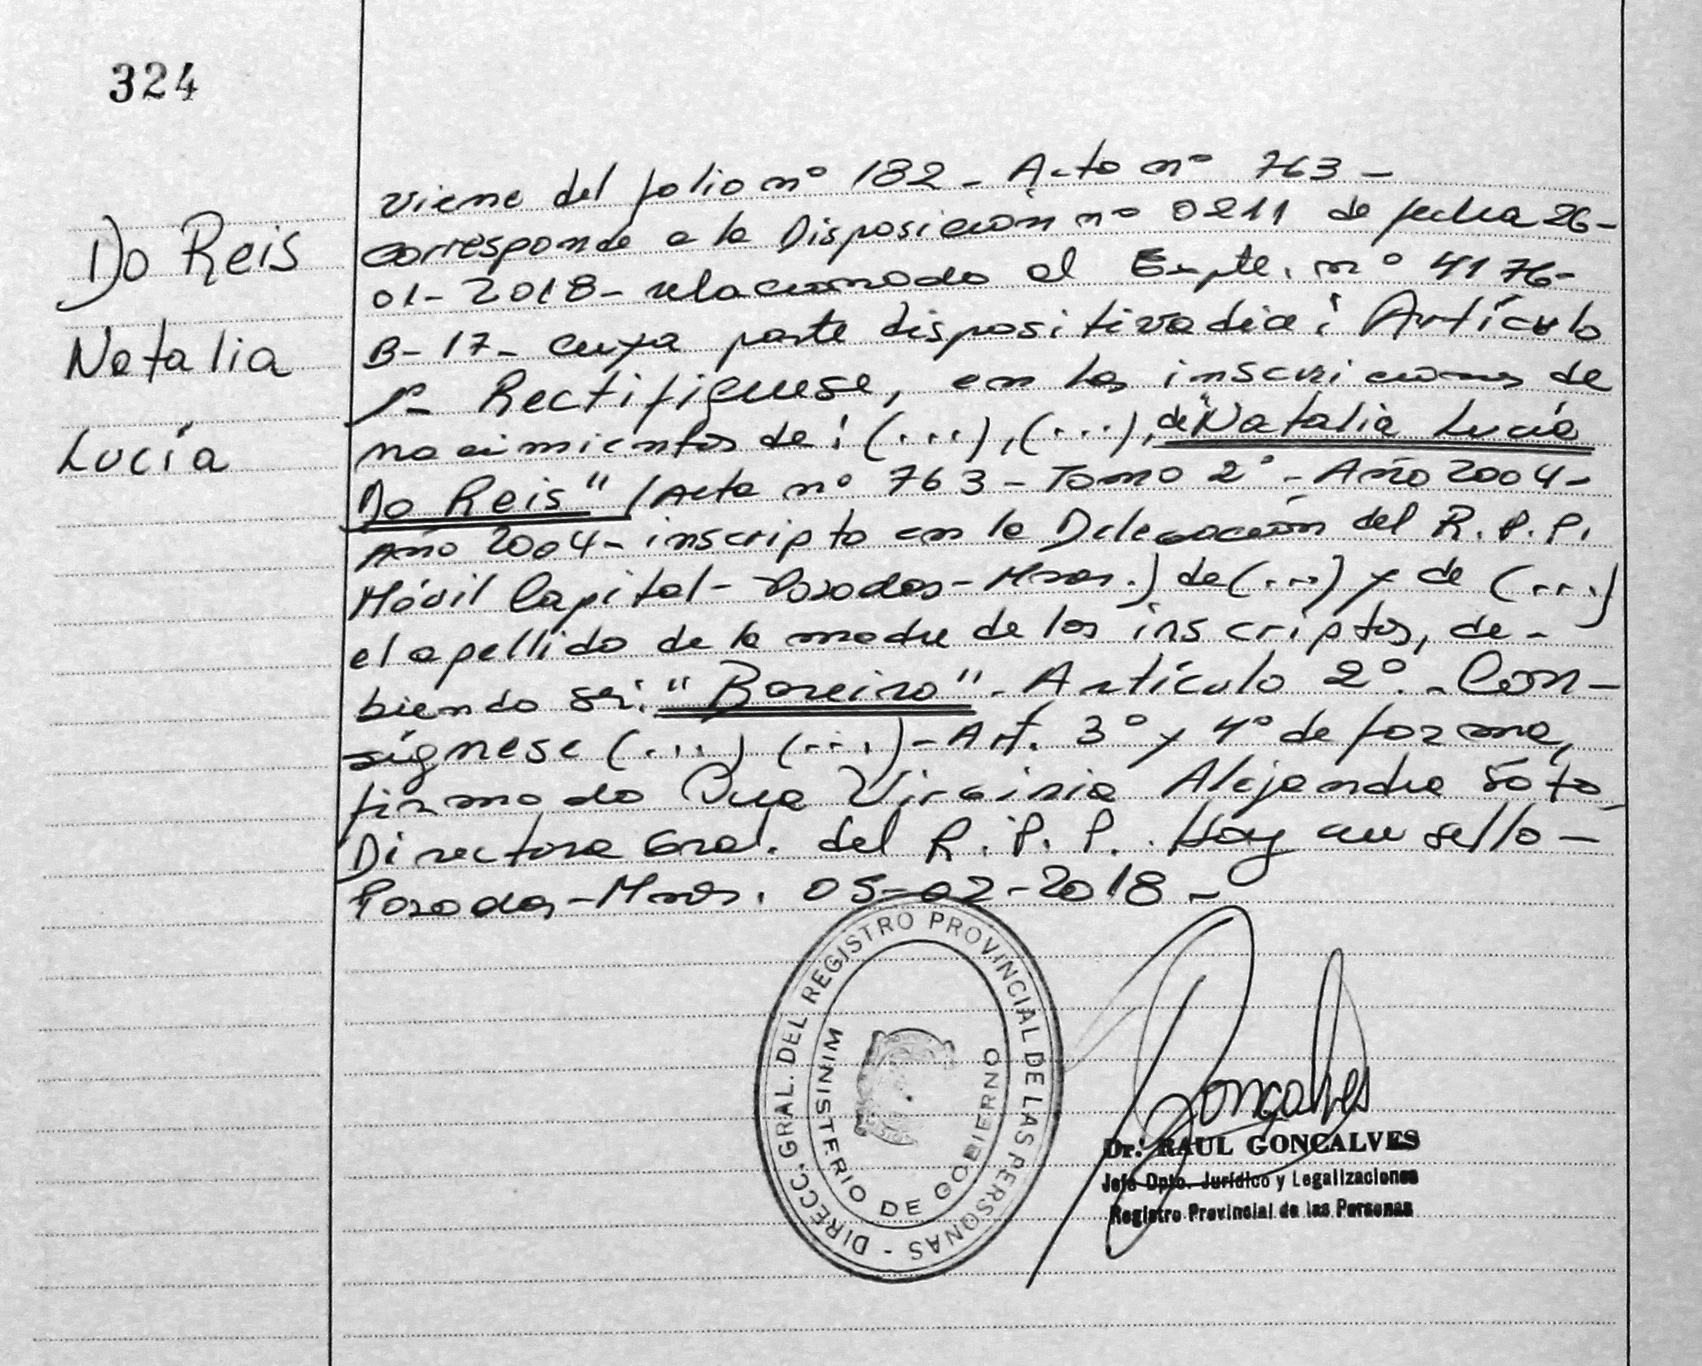 324
Do Reis
Natalia
Lucía
viene del folio nº 182 - Acta nº 763 -
corresponde a la Disposición nº 0211 de fecha 26-
01-2018- relacionado al Expte. nº 4176-
B-17- cuya parte dispositiva dice: Artículo
1º- Rectifíquese, en las inscripciones de
nacimientos de: (...), (...), de "Natalia Lucía
Do Reis" (Acta nº 763 - Tomo 2º - Año 2004-
Año 2004- inscripta en la Delegación del R.P.P.
Móvil Capital - Posadas - Mnes.) de (...) y de (...)
el apellido de la madre de los inscriptos, de-
biendo ser: "Boreiro" - Artículo 2º - Con-
sígnese (...) (...) - Art. 3º y 4º de forma,
firmado Virginia Alejandra Soto,
Directora Gral. del R.P.P. Hay un sello -
Posadas - Mnes. 05-02-2018 -
DIRECC. GRAL. DEL REGISTRO PROVINCIAL DE LAS PERSONAS -
MINISTERIO DE GOBIERNO
Goncalves
Dr. RAUL GONCALVES
Jefe Dpto. Jurídico y Legalizaciones
Registro Provincial de las Personas